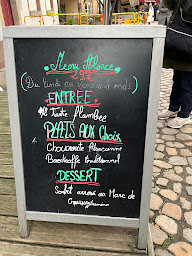 Menu Alsace
29€
(Du lundi au Vendredi midi)
ENTREE
1/2 Tarte flambée
PLATS AUX Choix
Choucroute Alsacienne
Baeckeoffe traditionnel
DESSERT
Sorbet arrosé au Marc de
Gewurztraminer